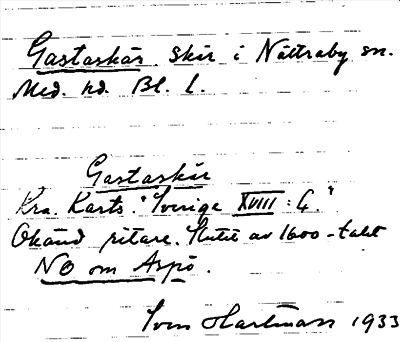 Gastaskär skär i Nättraby sn.
Med. hd. Bl. l.
Gastaskär
Kra. Karts. "Sverige XVIII : 4."
Okänd ritare. Slutet av 1600-talet
NO om Aspö.
Sven Hartman 1933